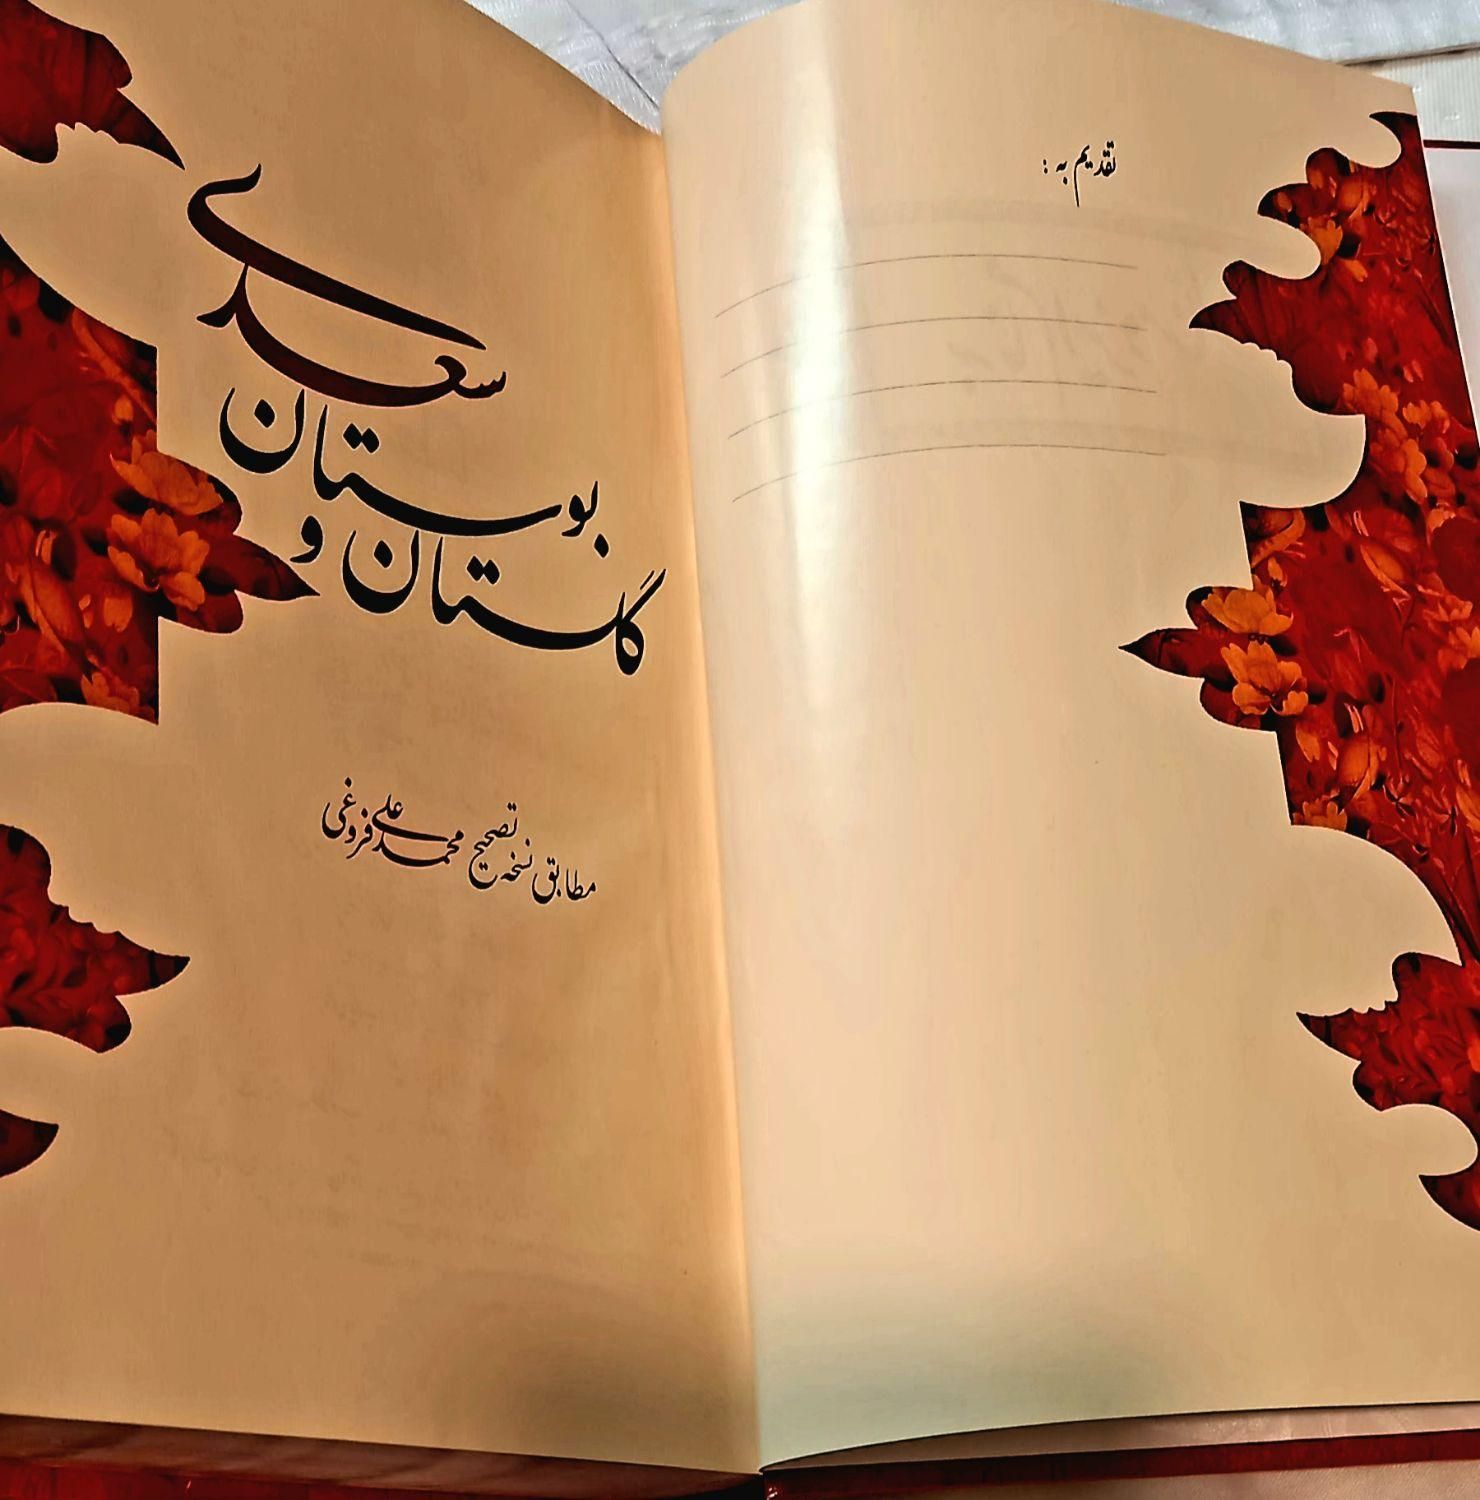 تقدیم به :
گلستان و
بوستان
سعدی
مطابق نسخه تصحیح محمدعلی فروغی